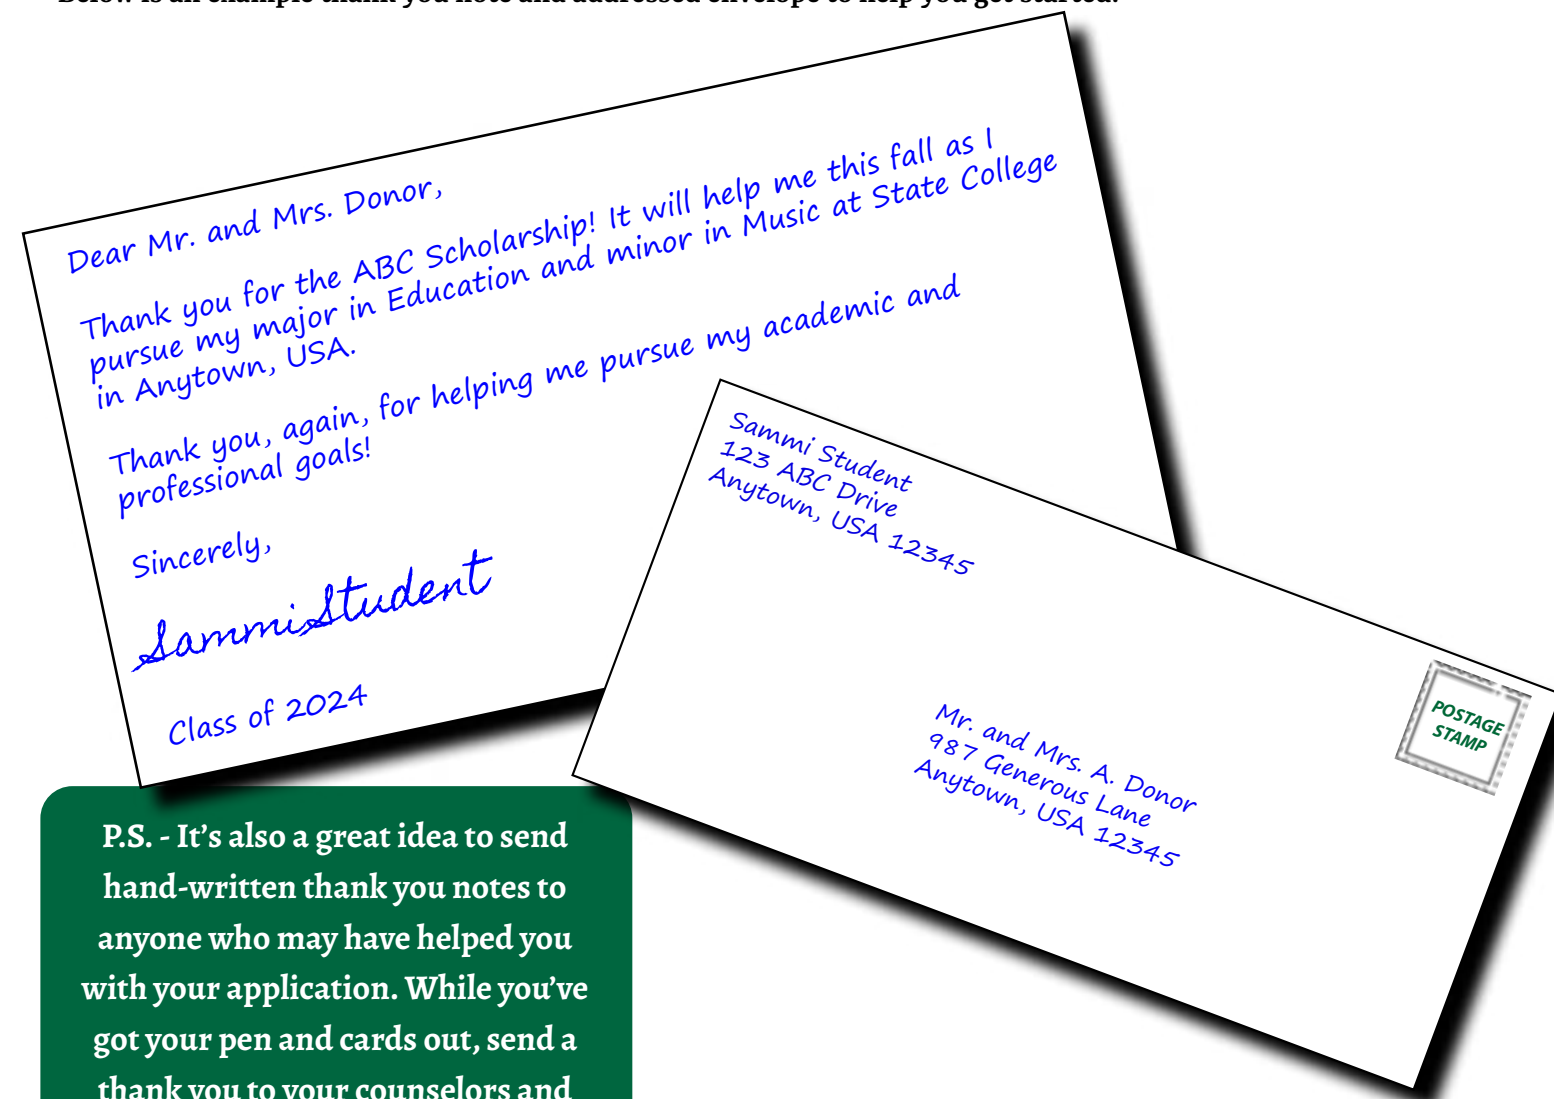 Below is an example thank you note and addressed envelope to help you get started.
Dear Mr. and Mrs. Donor,
Thank you for the ABC Scholarship! It will help me this fall as I
pursue my major in Education and minor in Music at State College
in Anytown, USA.
Thank you, again, for helping me pursue my academic and
professional goals!
Sincerely,
Sammi Student
Class of 2024
Sammi Student
123 ABC Drive
Anytown, USA 12345
POSTAGE
STAMP
Mr. and Mrs. A. Donor
987 Generous Lane
Anytown, USA 12345
P.S. - It’s also a great idea to send
hand-written thank you notes to
anyone who may have helped you
with your application. While you’ve
got your pen and cards out, send a
thank you to your counselors and